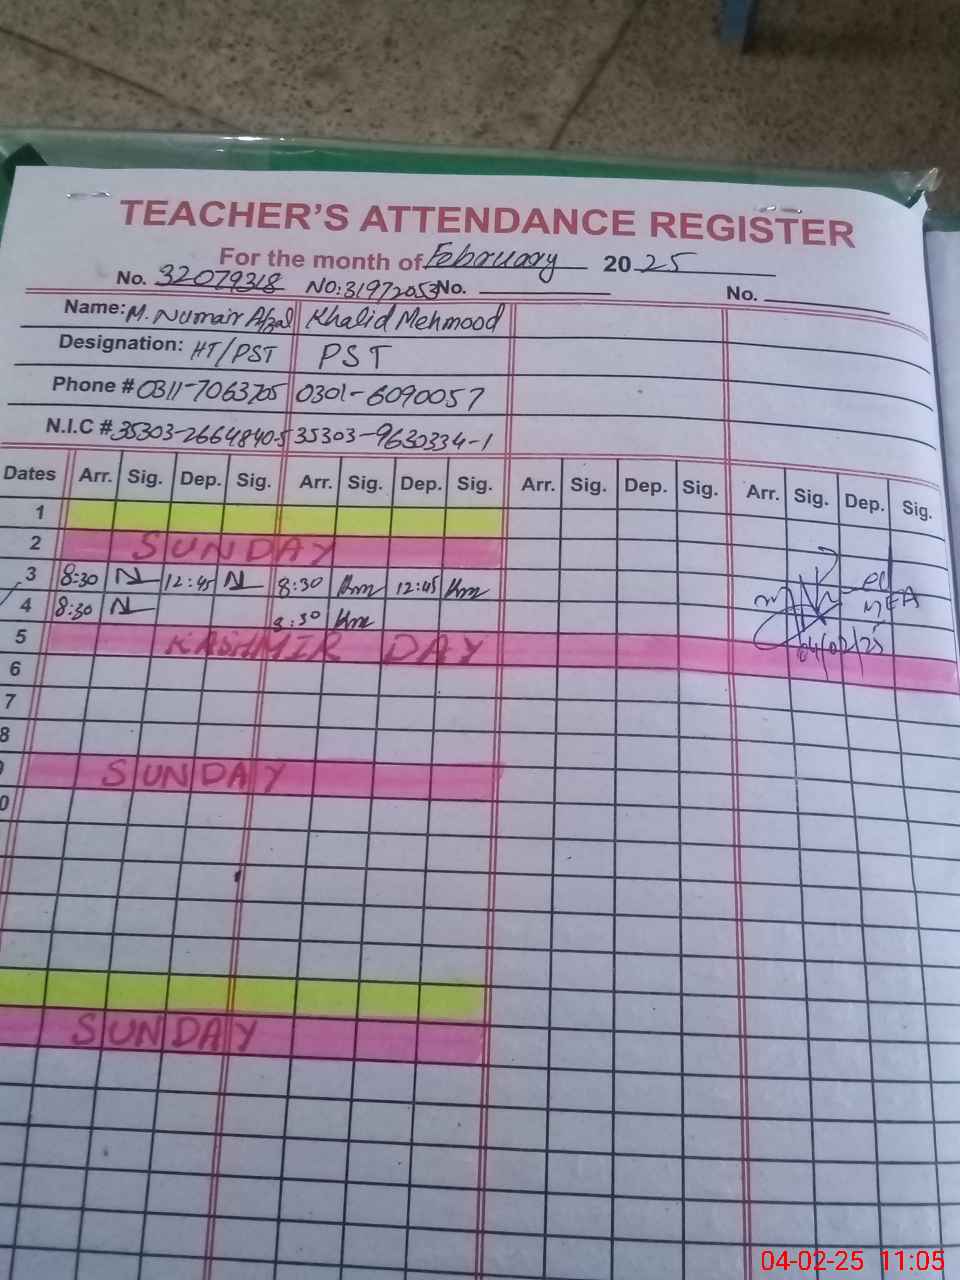 TEACHER'S ATTENDANCE REGISTER
For the month of February 2025
No. 32079318 NO:31972053 No. No.
Name: M. Numair Afzal Khalid Mehmood
Designation: HT/PST PST
Phone # 0311-7063705 0301-6090057
N.I.C # 35303-2664840-5 35303-9630334-1
Dates Arr. Sig. Dep. Sig. Arr. Sig. Dep. Sig. Arr. Sig. Dep. Sig. Arr. Sig. Dep. Sig.
1
2 SUNDAY
3 8:30 N 12:45 N 8:30 Km 12:45 Km
4 8:30 N 8:30 Km MEA
5 KASHMIR DAY 04/02/25
6
7
8
SUNDAY
0
SUNDAY
04-02-25 11:05